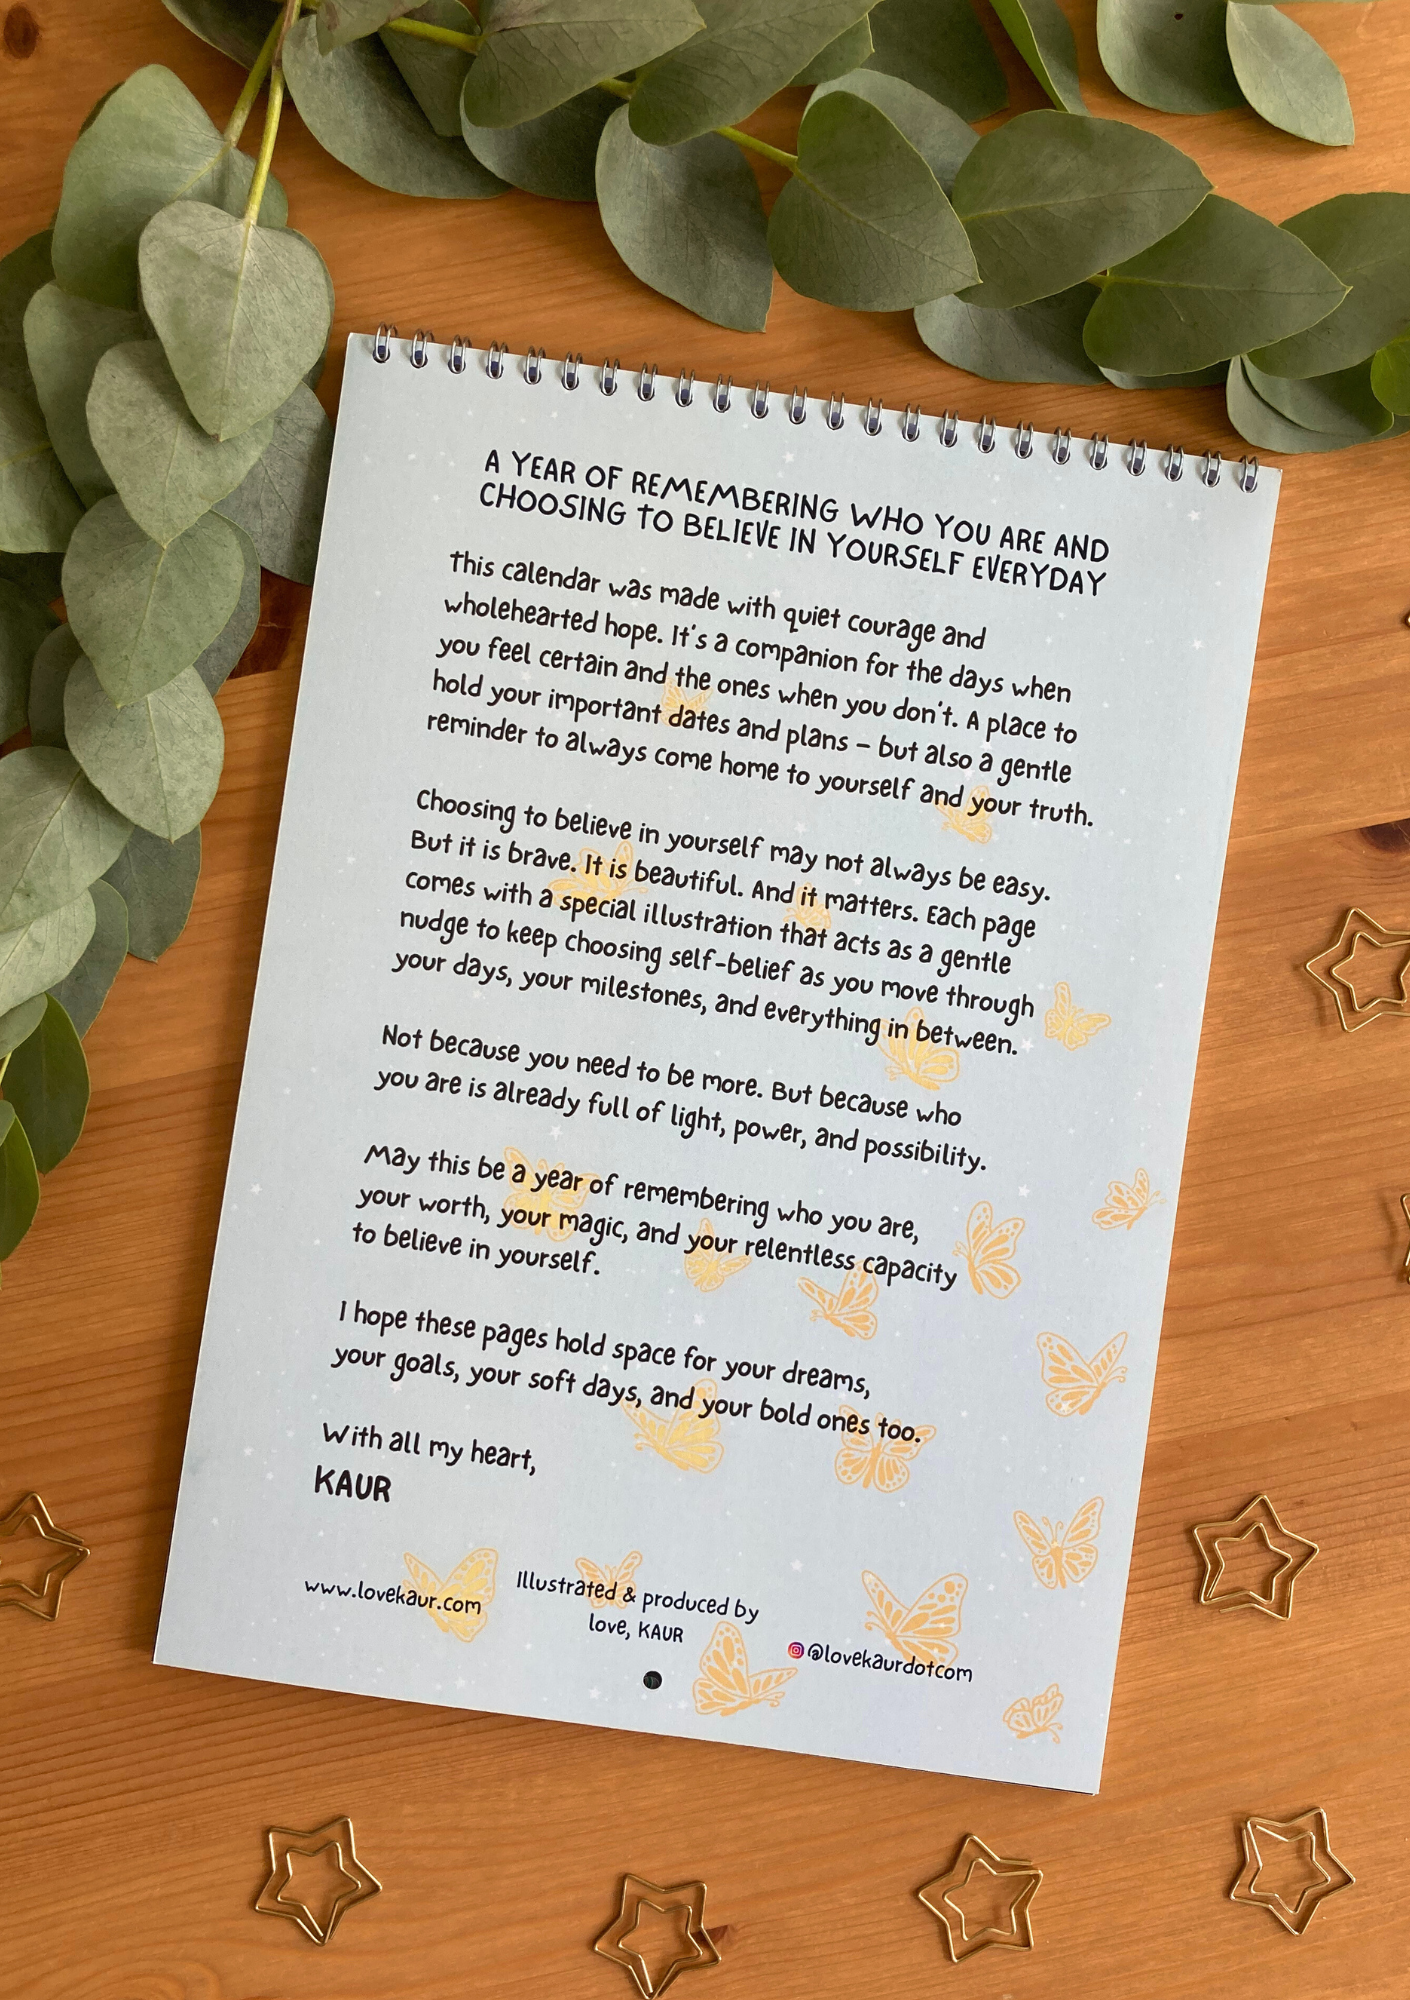 A YEAR OF REMEMBERING WHO YOU ARE AND
CHOOSING TO BELIEVE IN YOURSELF EVERYDAY
This calendar was made with quiet courage and
wholehearted hope. It's a companion for the days when
you feel certain and the ones when you don't. A place to
hold your important dates and plans – but also a gentle
reminder to always come home to yourself and your truth.
Choosing to believe in yourself may not always be easy.
But it is brave. It is beautiful. And it matters. Each page
comes with a special illustration that acts as a gentle
nudge to keep choosing self-belief as you move through
your days, your milestones, and everything in between.
Not because you need to be more. But because who
you are is already full of light, power, and possibility.
May this be a year of remembering who you are,
your worth, your magic, and your relentless capacity
to believe in yourself.
I hope these pages hold space for your dreams,
your goals, your soft days, and your bold ones too.
With all my heart,
KAUR
www.lovekaur.com
Illustrated & produced by
love, KAUR
@lovekaurdotcom